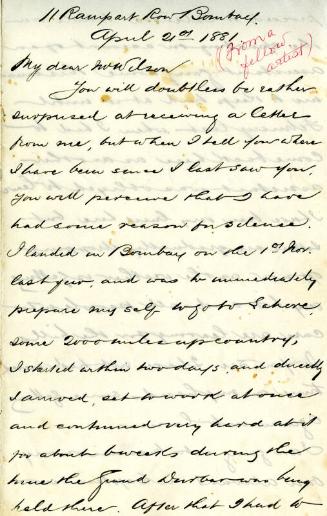 11 Rampart Row Bombay.
April 21st 1881
(From a
fellow
artist)
My dear Mr Wilson
You will doubtless be rather
surprised at receiving a letter
from me, but when I tell you where
I have been since I last saw you,
you will perceive that I have
had some reason for silence.
I landed in Bombay on the 1st Nov.
last year, and was to immediately
prepare my self to go to
some 2000 miles up country,
I started within two days and directly
I arrived, set to work at once
and continued very hard at it
for about 6 weeks during the
time the Grand Durbar was being
held there. After that I had to